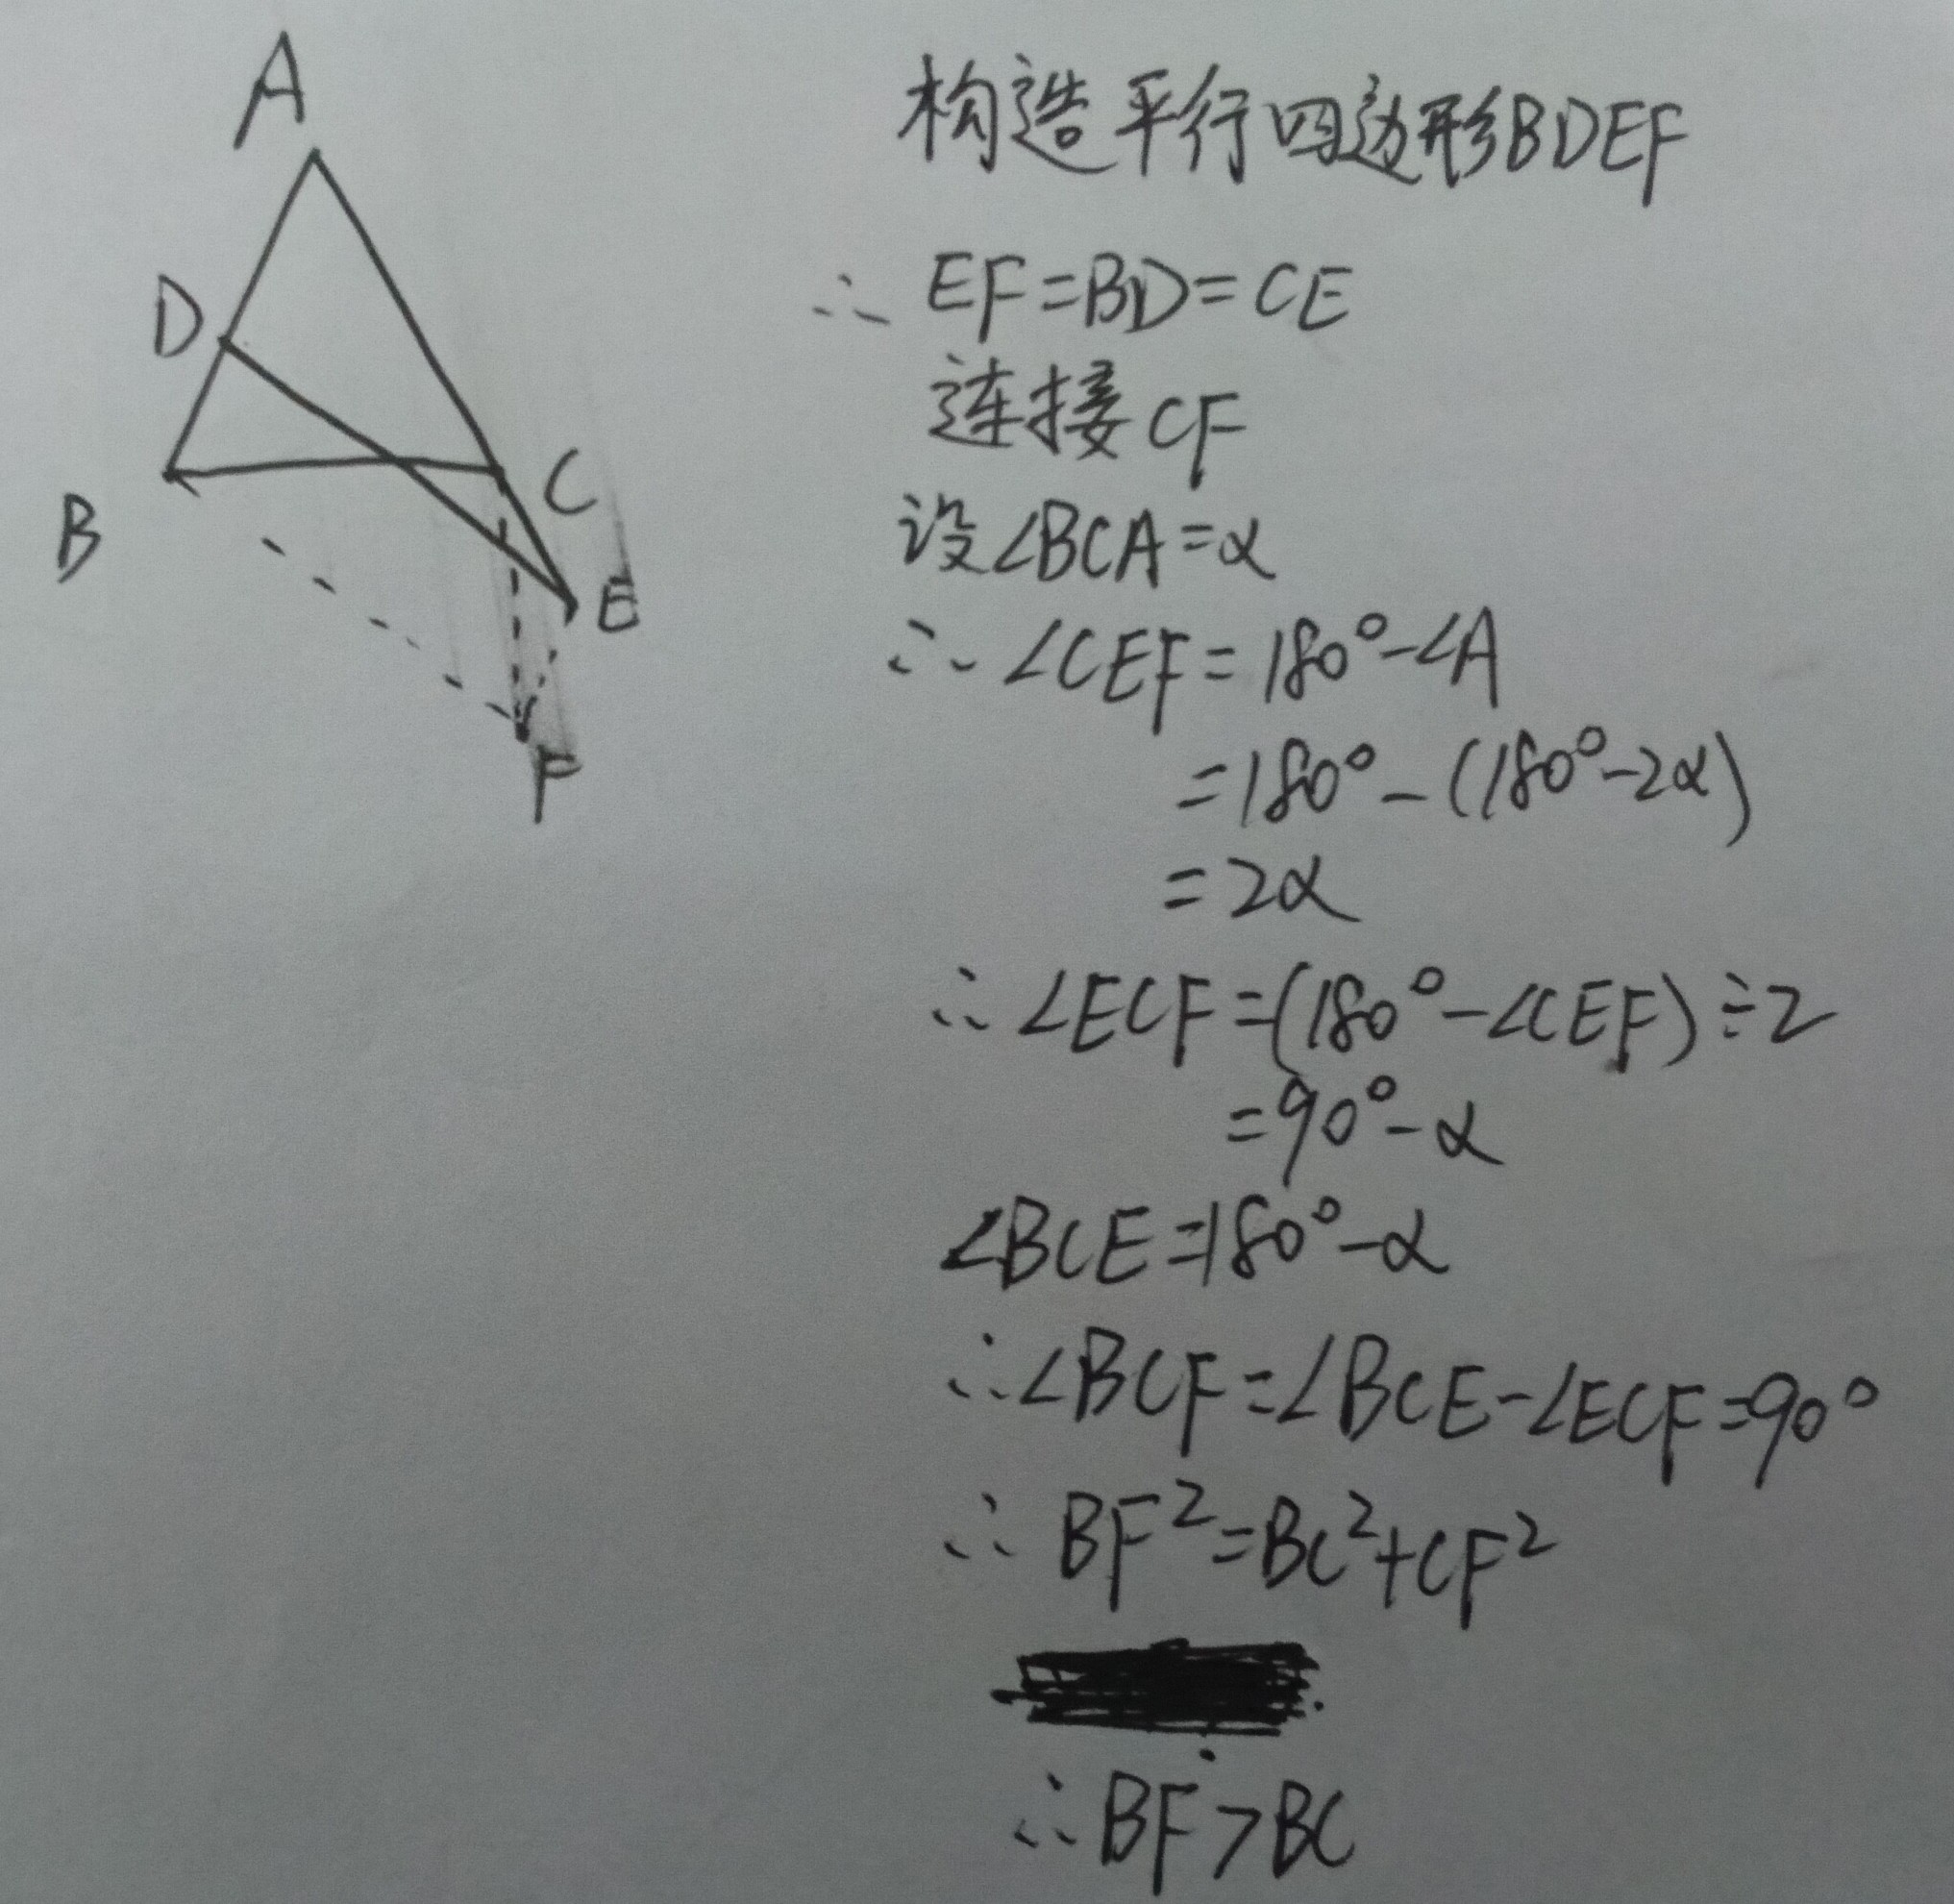 A
D
B
C
E
F
构造平行四边形BDEF
∴ EF=BD=CE
连接CF
设∠BCA=α
∴ ∠CEF=180°-∠A
=180°-(180°-2α)
=2α
∴ ∠ECF=(180°-∠CEF)÷2
=90°-α
∠BCE=180°-α
∴∠BCF=∠BCE-∠ECF=90°
∴ BF²=BC²+CF²
∴BF>BC